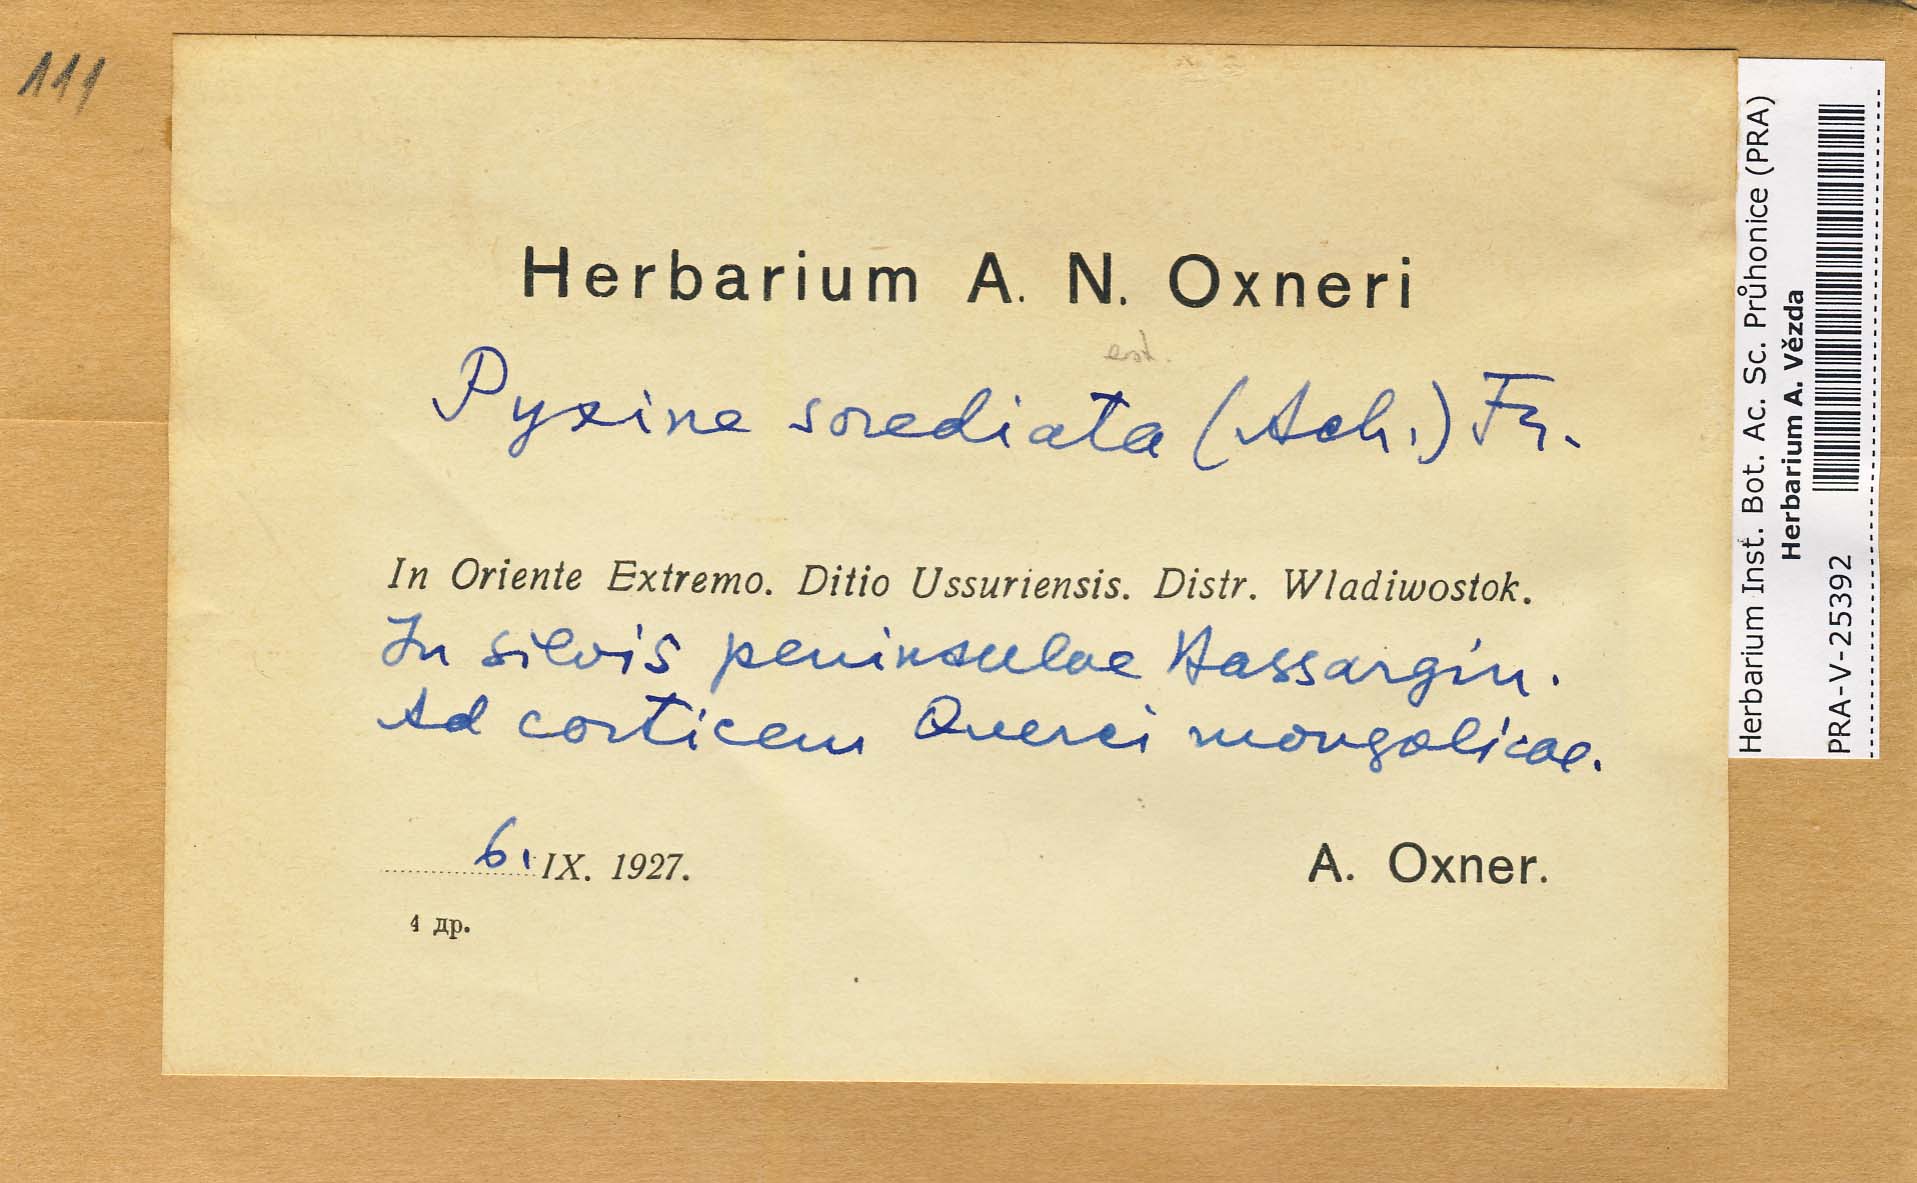 111
Herbarium A. N. Oxneri
Pyxine sorediata (Ach.) Fr.
In Oriente Extremo. Ditio Ussuriensis. Distr. Wladiwostok.
In silvis peninsulae Hassargin.
Ad corticem Querci mongolicae.
6. IX. 1927.
A. Oxner.
4 др.
Herbarium Inst. Bot. Ac. Sc. Průhonice (PRA)
Herbarium A. Vězda
PRA-V-25392